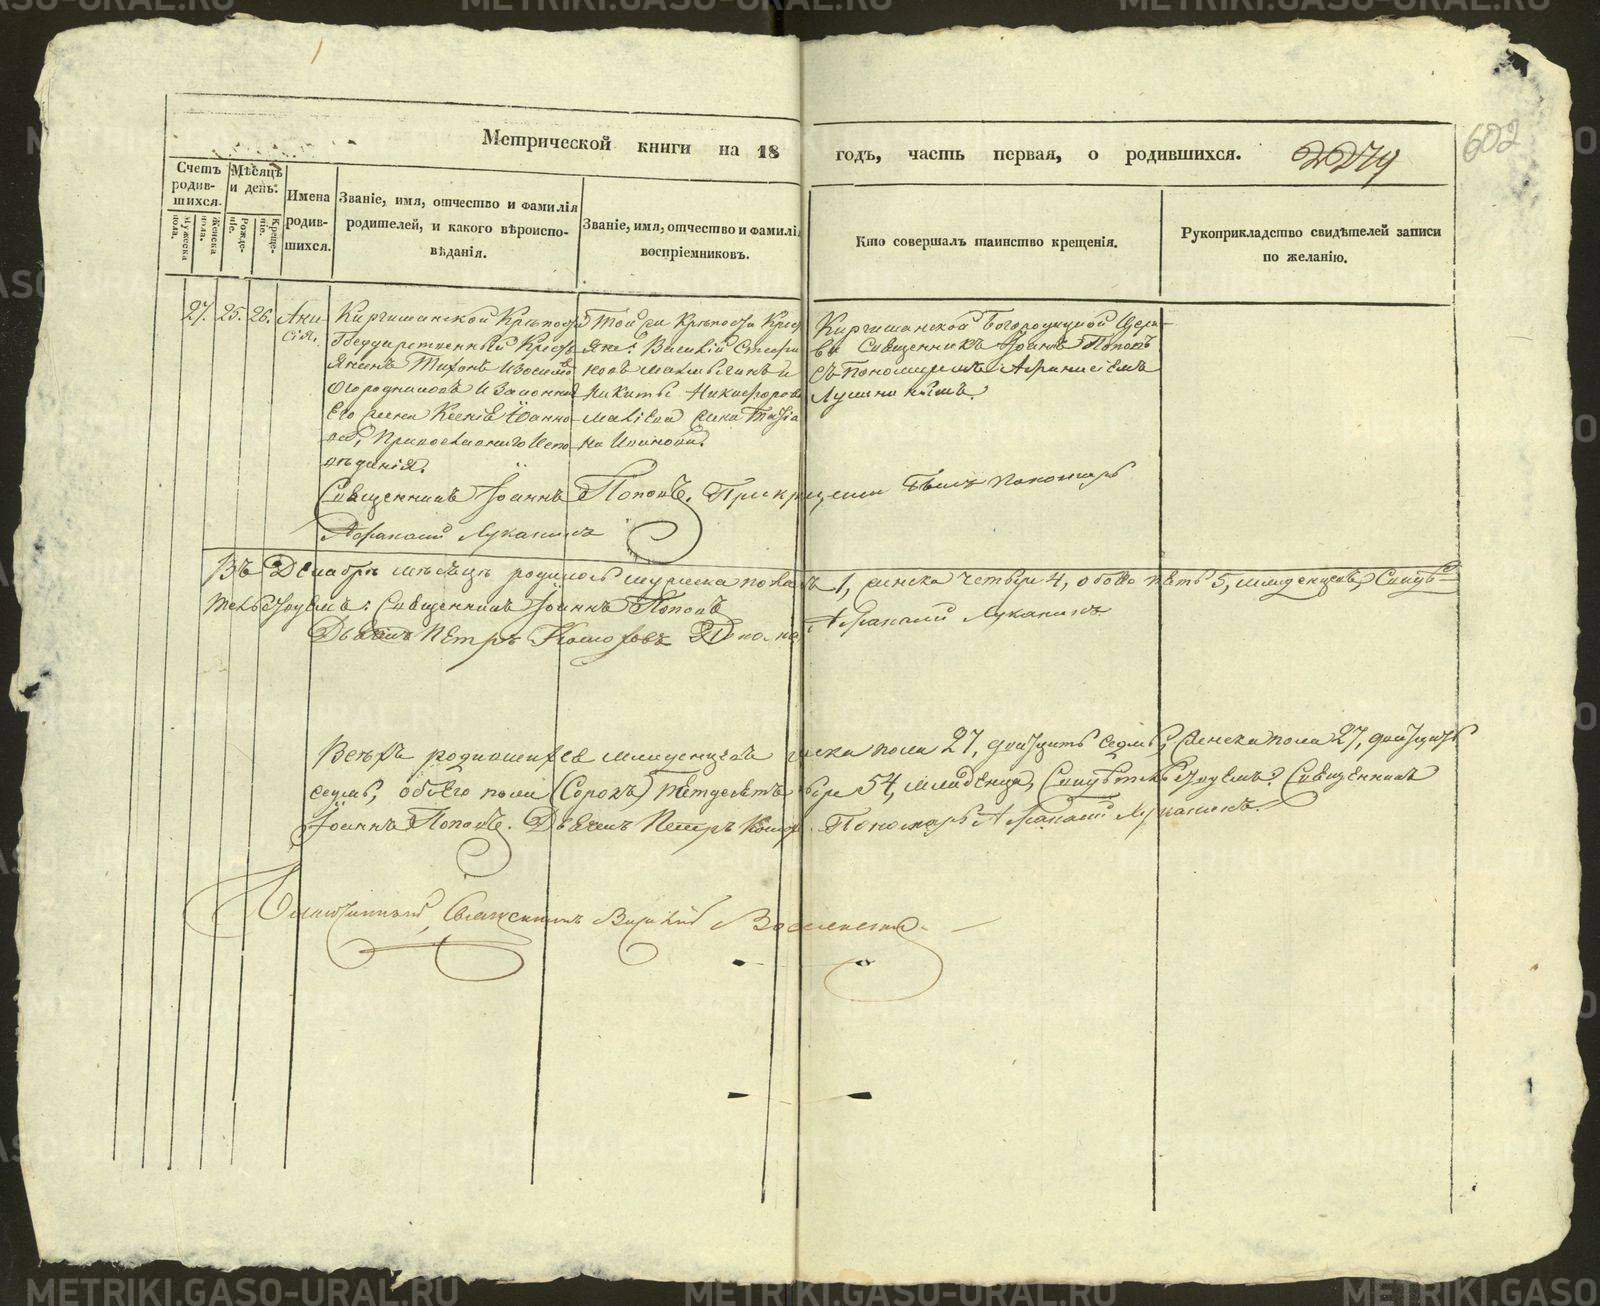 602
Метрической книги на 18 годъ, часть первая, о родившихся. 2279
Счетъ родив-шихся.
Мѣсяцъ и день.
Имена родив-шихся.
Званіе, имя, отчество и фамилія родителей, и какого вѣроиспо-вѣданія.
Званіе, имя, отчество и фамилія воспріемниковъ.
Кто совершалъ таинство крещенія.
Рукоприкладство свидѣтелей записи по желанію.
мужеска пола.
женска пола.
Рожде-ніе.
Креще-ніе.
27. 25. 26. Ани-
сія.
Киргишанской Крѣпости
Государственный Кресть-
янинъ Тихонъ
Огородниковъ и Законная
Его жена Ксенія Іоанно-
ва, Православнаго Испо-
вѣданія.
Той же Крѣпости Крест-
яне: Василій
и
Никиты Никифорова
жена Татіа-
на Иванова.
Киргишанской Богородицкой Церк-
ви Священникъ Іоаннъ Поповъ
съ Пономаремъ Афанасіемъ
Лукинымъ.
Священникъ Іоаннъ Поповъ. При крещеніи былъ Пономарь
Афанасій Луканинъ
Въ Декабрѣ мѣсяцѣ родилось мужеска пола 1, женска четыре 4, обоего пять 5, младенцевъ, Свидѣ-
тельствуемъ: Священникъ Іоаннъ Поповъ
Дьячекъ Петръ Афанасій Луканинъ
Всѣхъ родившихся младенцевъ муска пола 27, двадцать седмь, женска пола 27, двадцать
седмь, обоего пола (Сорокъ) пятдесятъ 54, младенца, Свидѣтельствуемъ: Священникъ
Іоаннъ Поповъ. Дьячекъ Петръ Пономарь Афанасій Луканинъ.
Священникъ Василій